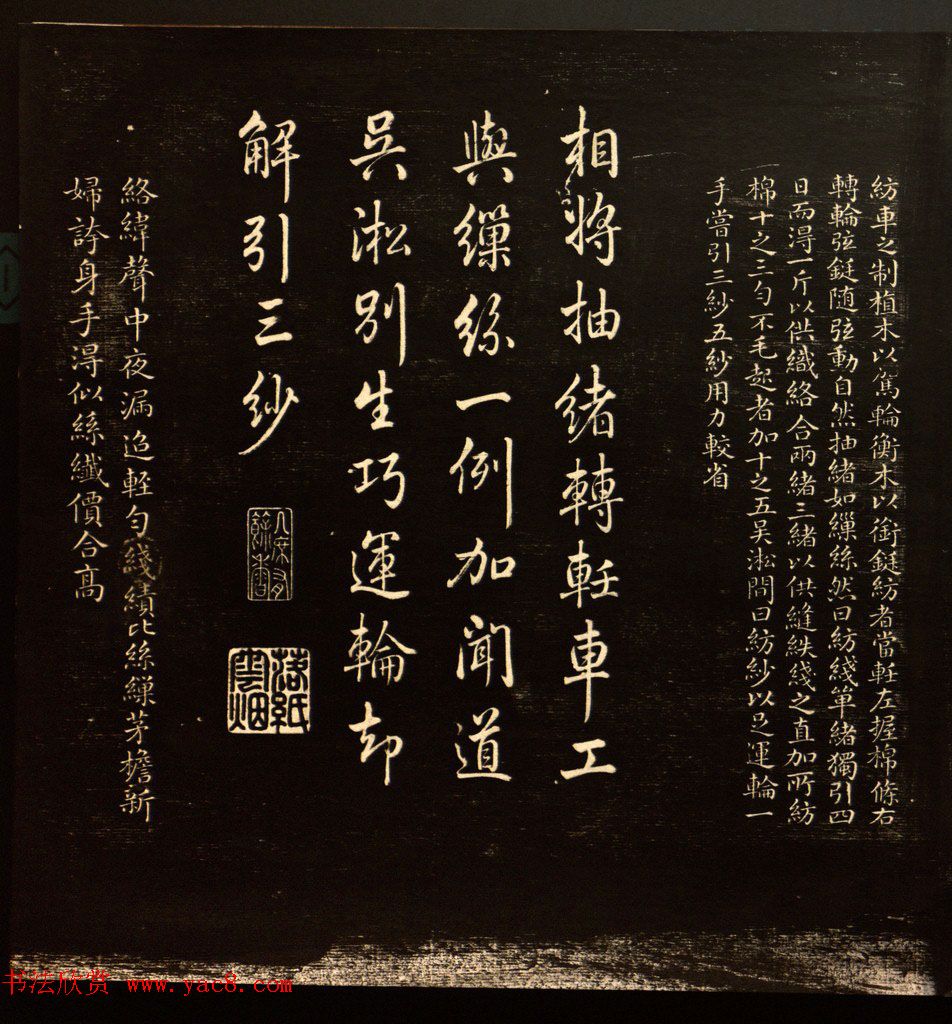 紡車之制植木以駕輪衡木以銜鋌紡者當軖左握棉條右
轉輪弦鋌随弦動自然抽緒如繅絲然曰紡綫單緒獨引四
日而得一斤以供織絡合兩緒三緒以供縫紩綫之直加所紡
棉十之三勻不毛起者加十之五吴淞間曰紡紗以足運輪一
手嘗引三紗五紗用力較省
相將抽緒轉軖車工
與繅絲一例加聞道
吴淞別生巧運輪却
解引三紗
落紙雲烟
絡緯聲中夜漏迢輕勻綫績比絲繅茅檐新
婦誇身手得似絲纖價合高
书法欣赏 www.yac8.com